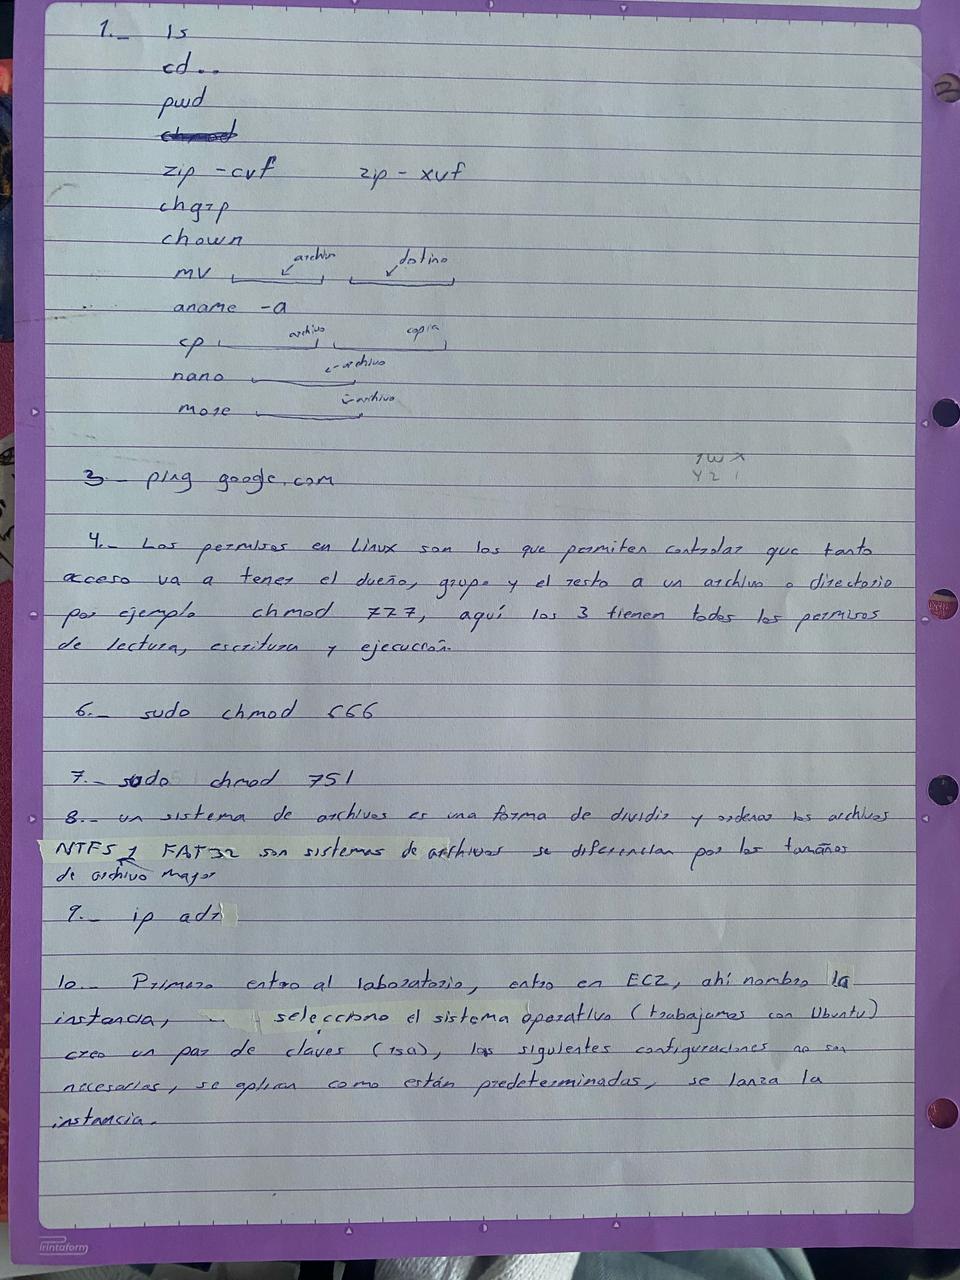 1._ ls
cd..
pwd
zip -cvf zip - xvf
chgrp
chown
mv archivo destino
uname -a
cp archivo copia
nano archivo
more archivo
rwx
421
3.- ping google.com
4.- Los permisos en Linux son los que permiten controlar que tanto
acceso va a tener el dueño, grupo y el resto a un archivo o directorio
por ejemplo chmod 777, aquí los 3 tienen todos los permisos
de lectura, escritura y ejecución.
6._ sudo chmod 666
7.- sudo chmod 751
8.- un sistema de archivos es una forma de dividir y ordenar los archivos
NTFS y FAT32 son sistemas de archivos se diferencian por los tamaños
de archivo mayor
9.- ip adr
10.- Primero entro al laboratorio, entro en EC2, ahí nombro la
instancia, selecciono el sistema operativo (trabajamos con Ubuntu)
creo un par de claves (rsa), las siguientes configuraciones no son
necesarias, se aplican como están predeterminadas, se lanza la
instancia.
Printaform